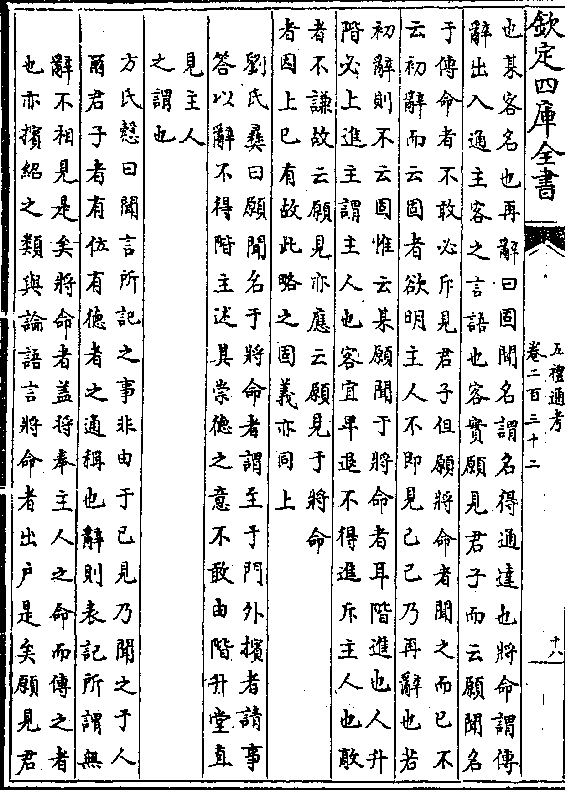 欽定四庫全書
五禮通考
卷二百三十二
十八
也某客名也再辭曰固聞名謂名得通達也將命謂傳
辭出入通主客之言語也客實願見君子而云願聞名
于傳命者不敢必斥見君子但願將命者聞之而已不
云初辭而云固者欲明主人不即見己己乃再辭也若
初辭則不云固惟云某願聞于將命者耳階進也人升
階必上進主謂主人也客宜卑退不得進斥主人也敵
者不謙故云願見亦應云願見于將命
者因上已有故此略之固義亦同上
劉氏彝曰願聞名于將命者謂至于門外擯者請事
答以辭不得階主述其崇德之意不敢由階升堂直
見主人
之謂也
方氏慤曰聞言所記之事非由于已見乃聞之于人
爾君子者有位有德者之通稱也辭則表記所謂無
辭不相見是矣將命者蓋將奉主人之命而傳之者
也亦擯紹之類與論語言將命者出户是矣願見君